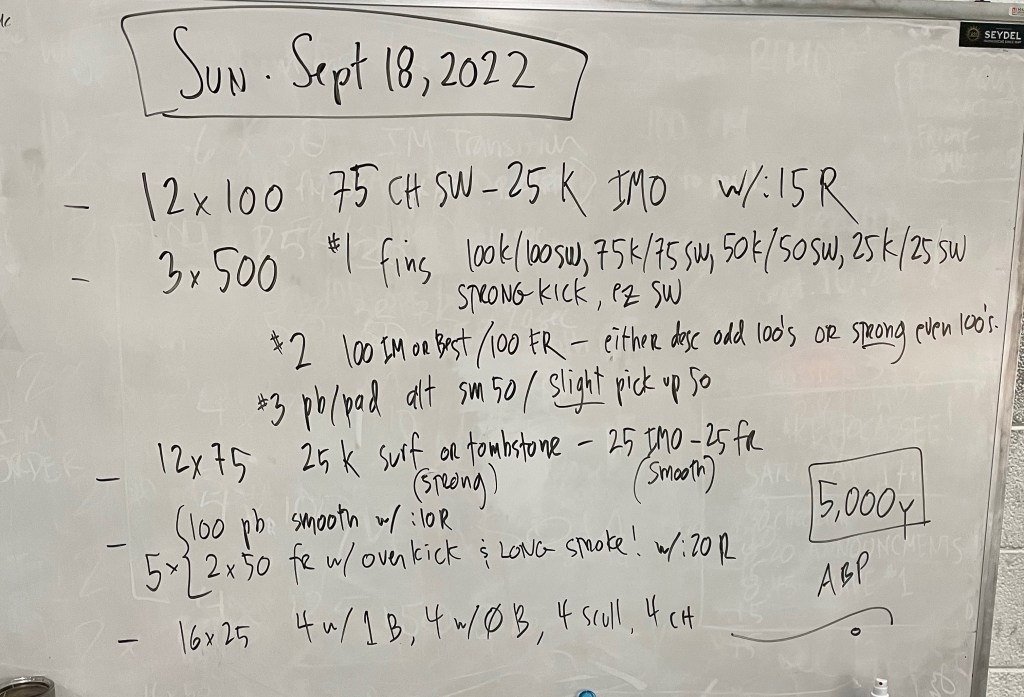 SUN. Sept 18, 2022
SEYDEL
- 12 x 100 75 CH SW - 25 K IMO w/ :15 R
- 3 x 500 #1 fins 100K/100SW, 75K/75SW, 50K/50SW, 25K/25SW
STRONG KICK, ez SW
#2 100 IM OR Best / 100 FR - either desc odd 100's OR strong even 100's.
#3 pb/pad alt sm 50 / slight pick up 50
- 12 x 75 25 K surf or tombstone - 25 IMO - 25 fr
(strong) (smooth)
- 5x { 100 pb smooth w/ :10R
2 x 50 fr w/ overkick & LONG stroke! w/ :20 R
- 16 x 25 4 w/ 1 B, 4 w/ Ø B, 4 scull, 4 CH
5,000y
ABP